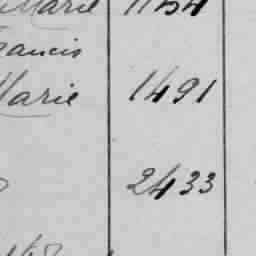 Marie 1154
rancis
Marie 1491
2433